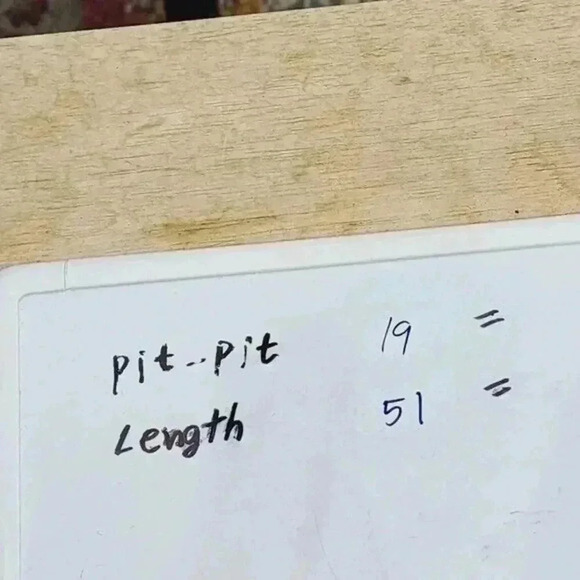 Pit--Pit 19 =
Length 51 =